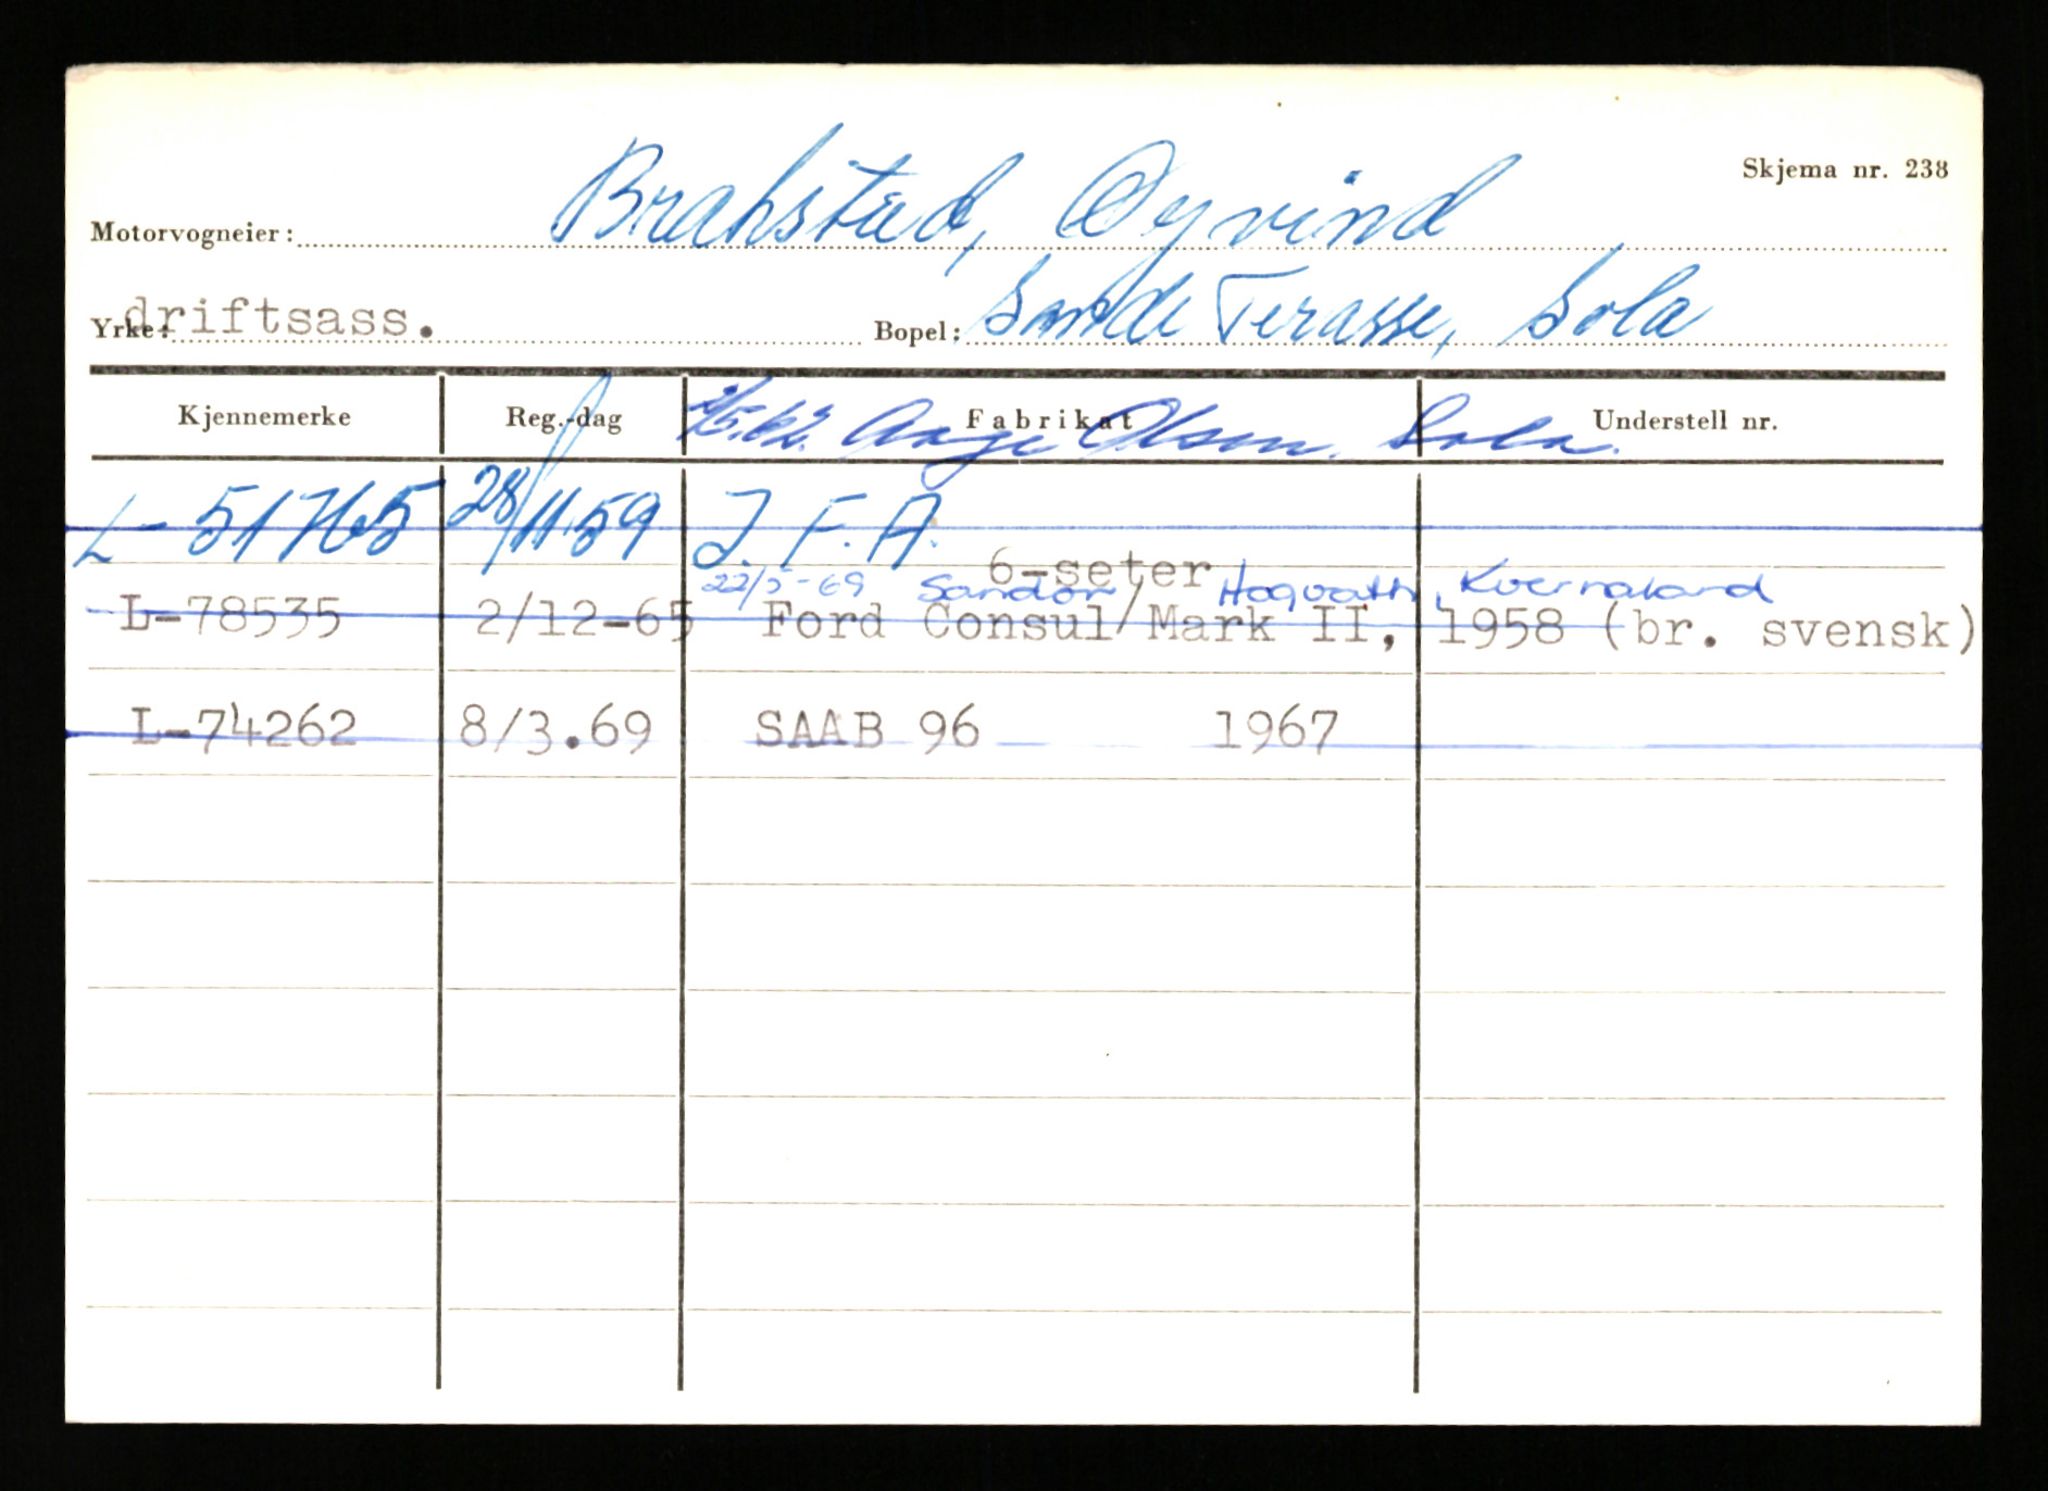 Skjema nr. 238
Motorvogneier: Brakstad, Øyvind
Yrke: driftsass. Bopel: Sande Terasse, Sola
Kjennemerke Reg.-dag Fabrikat Understell nr.
Aage Olsen, Sola.
L-51765 28/11.59 J. F. A.
6-seter
22/5-69 Sandor Hoqvath, Kvernaland
L-78535 2/12-65 Ford Consul/Mark II, 1958 (br. svensk)
L-74262 8/3.69 SAAB 96 1967